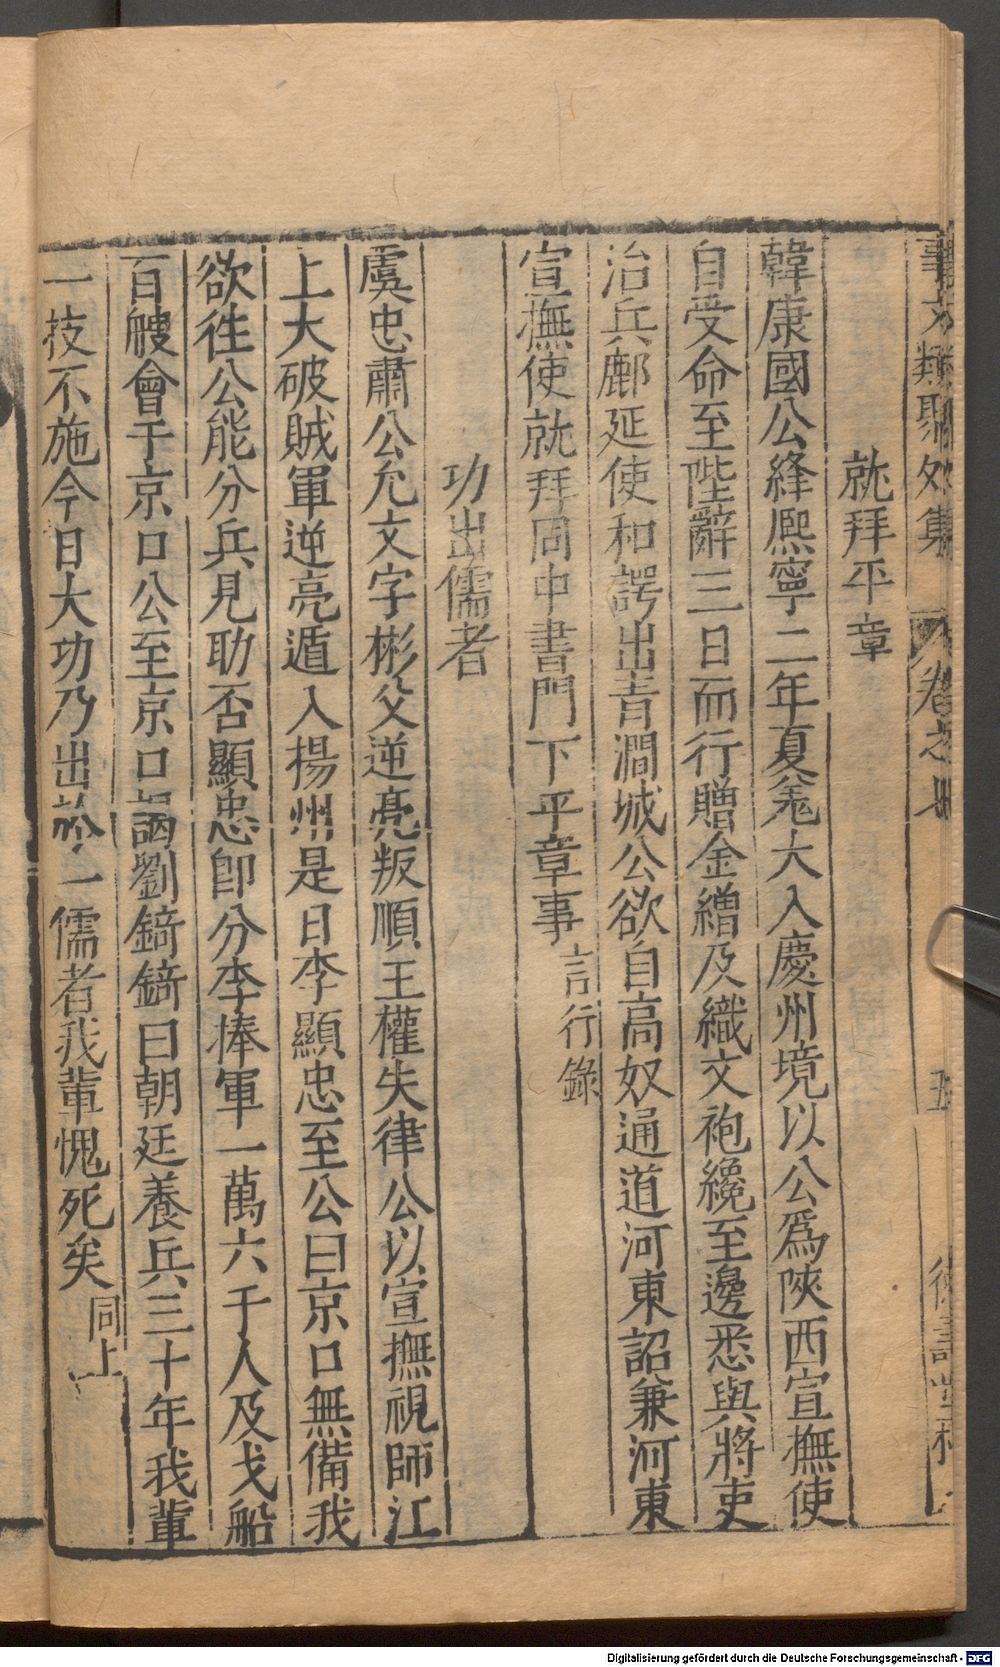 事文類聚外集 卷之 五
就拜平章
韓康國公絳熈寧二年夏羌大入慶州境以公爲陝西宣撫使
自受命至陛辭三日而行贈金繒及織文袍纔至邊悉與將吏
治兵鄜延使和諤出青澗城公欲自高奴通道河東詔兼河東
宣撫使就拜同中書門下平章事 言行錄
功出儒者
虞忠肅公允文字彬父逆亮叛順王權失律公以宣撫視師江
上大破賊軍逆亮遁入揚州是日李顯忠至公曰京口無備我
欲徃公能分兵見助否顯忠卽分李捧軍一萬六千人及戈船
百艘會于京口公至京口謁劉錡錡曰朝廷養兵三十年我輩
一技不施今日大功乃出於一儒者我輩愧死矣 同上
Digitalisierung gefördert durch die Deutsche Forschungsgemeinschaft - DFG